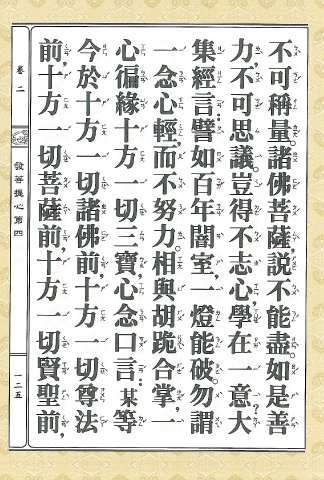 不可稱量。諸佛菩薩說不能盡。如是善
力，不可思議。豈得不志心，學在一意？大
集經言：譬如百年闇室，一燈能破。勿謂
一念心輕，而不努力。相與胡跪合掌，一
心徧緣十方一切三寶，心念口言：某等
今於十方一切諸佛前，十方一切尊法
前，十方一切菩薩前，十方一切賢聖前，
卷二
發菩提心第四
一二五